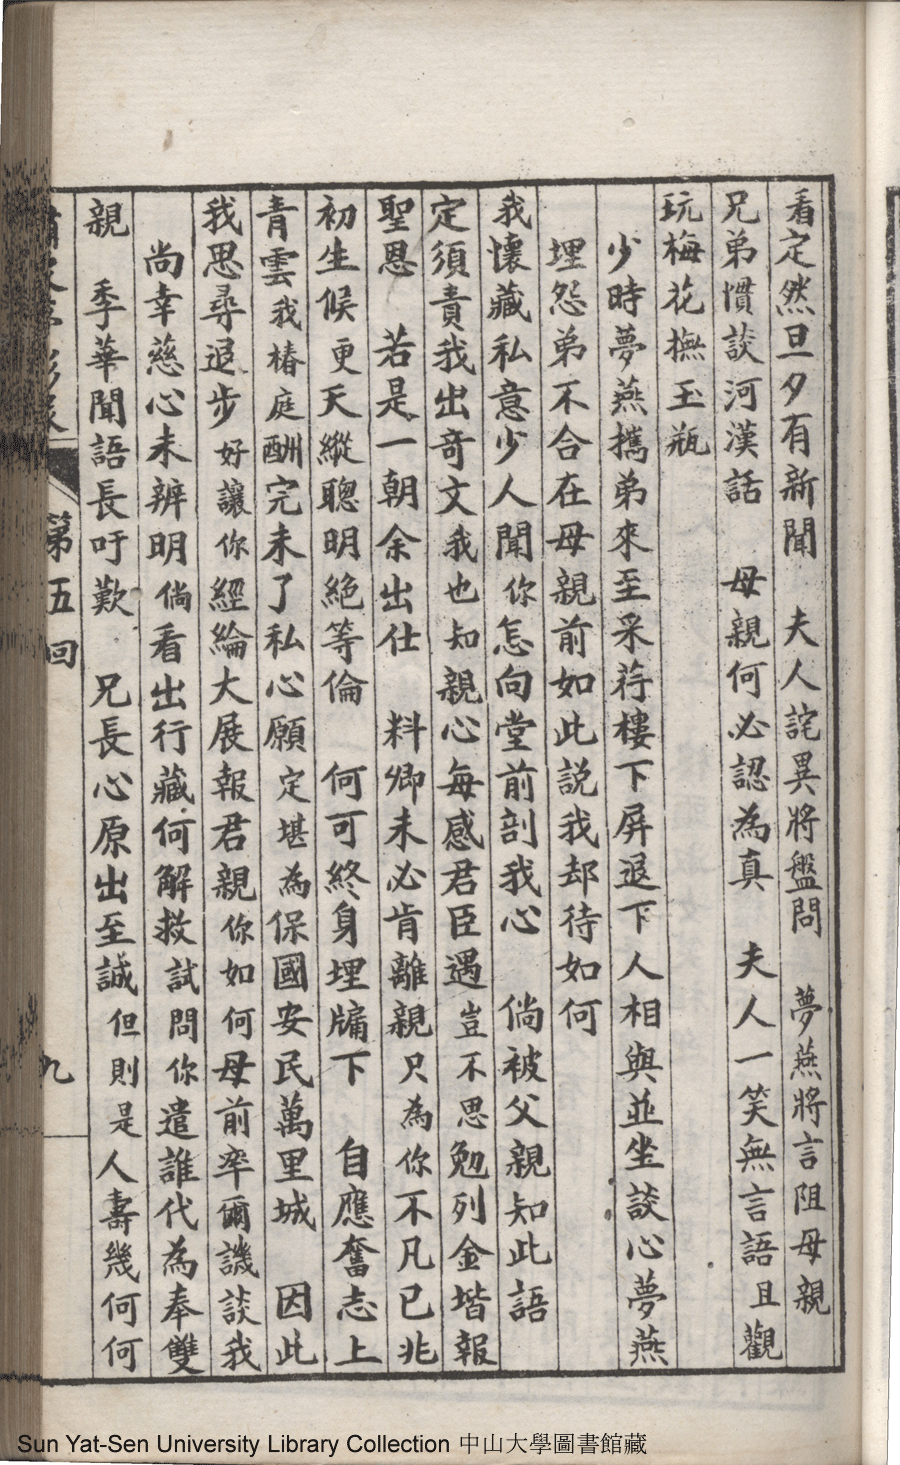 看定然旦夕有新聞　夫人詫異將盤問　夢燕將言阻母親
兄弟慣談河漢話　母親何必認為真　夫人一笑無言語且觀
玩梅花撫玉瓶
少時夢燕攜弟來至采荇樓下屏退下人相與並坐談心夢燕
埋怨弟不合在母親前如此説我却待如何
我懷藏私意少人聞你怎向堂前剖我心　倘被父親知此語
定須責我出奇文我也知親心每感君臣遇豈不思勉列金堦報
聖恩　若是一朝余出仕　料卿未必肯離親只為你不凡已兆
初生候更天縱聰明絶等倫　何可終身埋牖下　自應奮志上
青雲我椿庭酬完未了私心願定堪為保國安民萬里城　因此
我思尋退步好讓你經綸大展報君親你如何母前卒爾譏談我
尚幸慈心未辨明倘看出行藏何解救試問你遣誰代為奉雙
親　季華聞語長吁歎　兄長心原出至誠但則是人壽幾何何
第五回
九
Sun Yat-Sen University Library Collection 中山大學圖書館藏